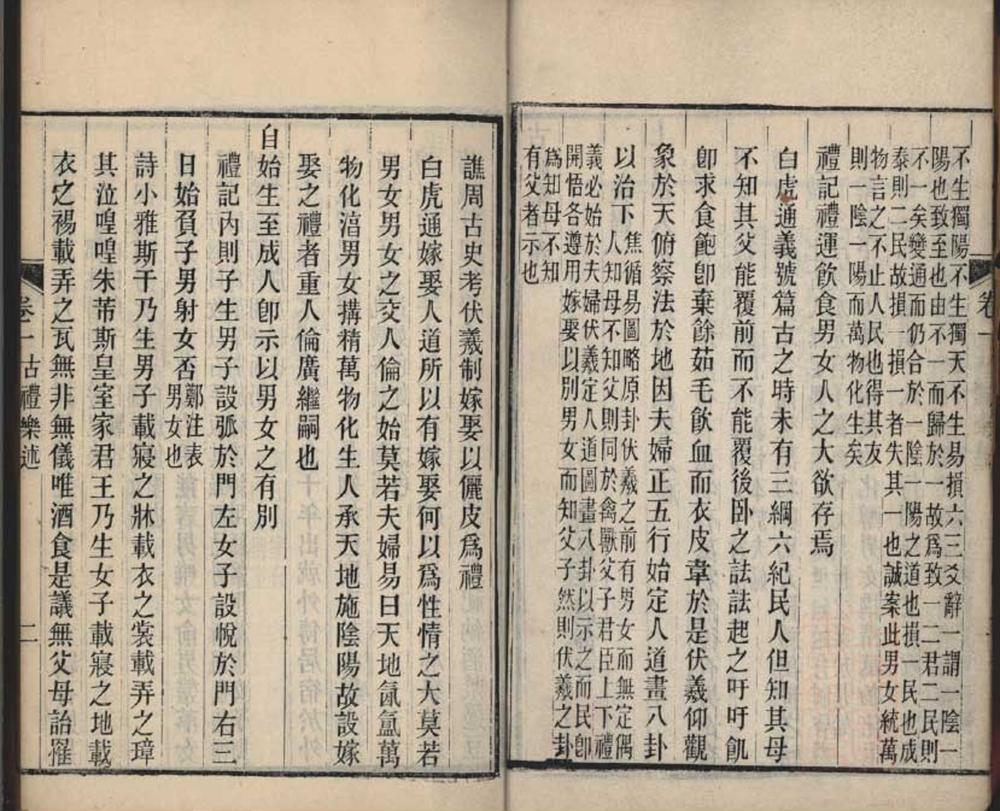 不生獨陽不生獨天不生易損六三爻辭一謂一陰一
陽也致至也由不一而歸於一故爲致一二君二民則
不一矣變通而仍合於一陰一陽之道也損一民也成
泰則二民故損一損一者失其一也誠案此男女統萬
物言之不止人民也得其友
則一陰一陽而萬物化生矣
禮記禮運飲食男女人之大欲存焉
白虎通義號篇古之時未有三綱六紀民人但知其母
不知其父能覆前而不能覆後卧之詓詓起之吁吁飢
卽求食飽卽棄餘茹毛飲血而衣皮韋於是伏羲仰觀
象於天俯察法於地因夫婦正五行始定人道畫八卦
以治下
焦循易圖略原卦伏羲之前有男女而無定偶
人知母不知父則同於禽獸父子君臣上下禮
義必始於夫婦伏羲定人道圖畫八卦以示之而民卽
開悟各遵用嫁娶以別男女而知父子然則伏羲之卦
爲知母不知
有父者示也
卷一
譙周古史考伏羲制嫁娶以儷皮爲禮
白虎通嫁娶人道所以有嫁娶何以爲性情之大莫若
男女男女之交人倫之始莫若夫婦易曰天地氤氳萬
物化湻男女搆精萬物化生人承天地施陰陽故設嫁
娶之禮者重人倫廣繼嗣也
自始生至成人卽示以男女之有別
禮記內則子生男子設弧於門左女子設帨於門右三
日始負子男射女否
鄭注表
男女也
詩小雅斯干乃生男子載寢之牀載衣之裳載弄之璋
其泣喤喤朱芾斯皇室家君王乃生女子載寢之地載
衣之裼載弄之瓦無非無儀唯酒食是議無父母詒罹
卷一 古禮樂述 二